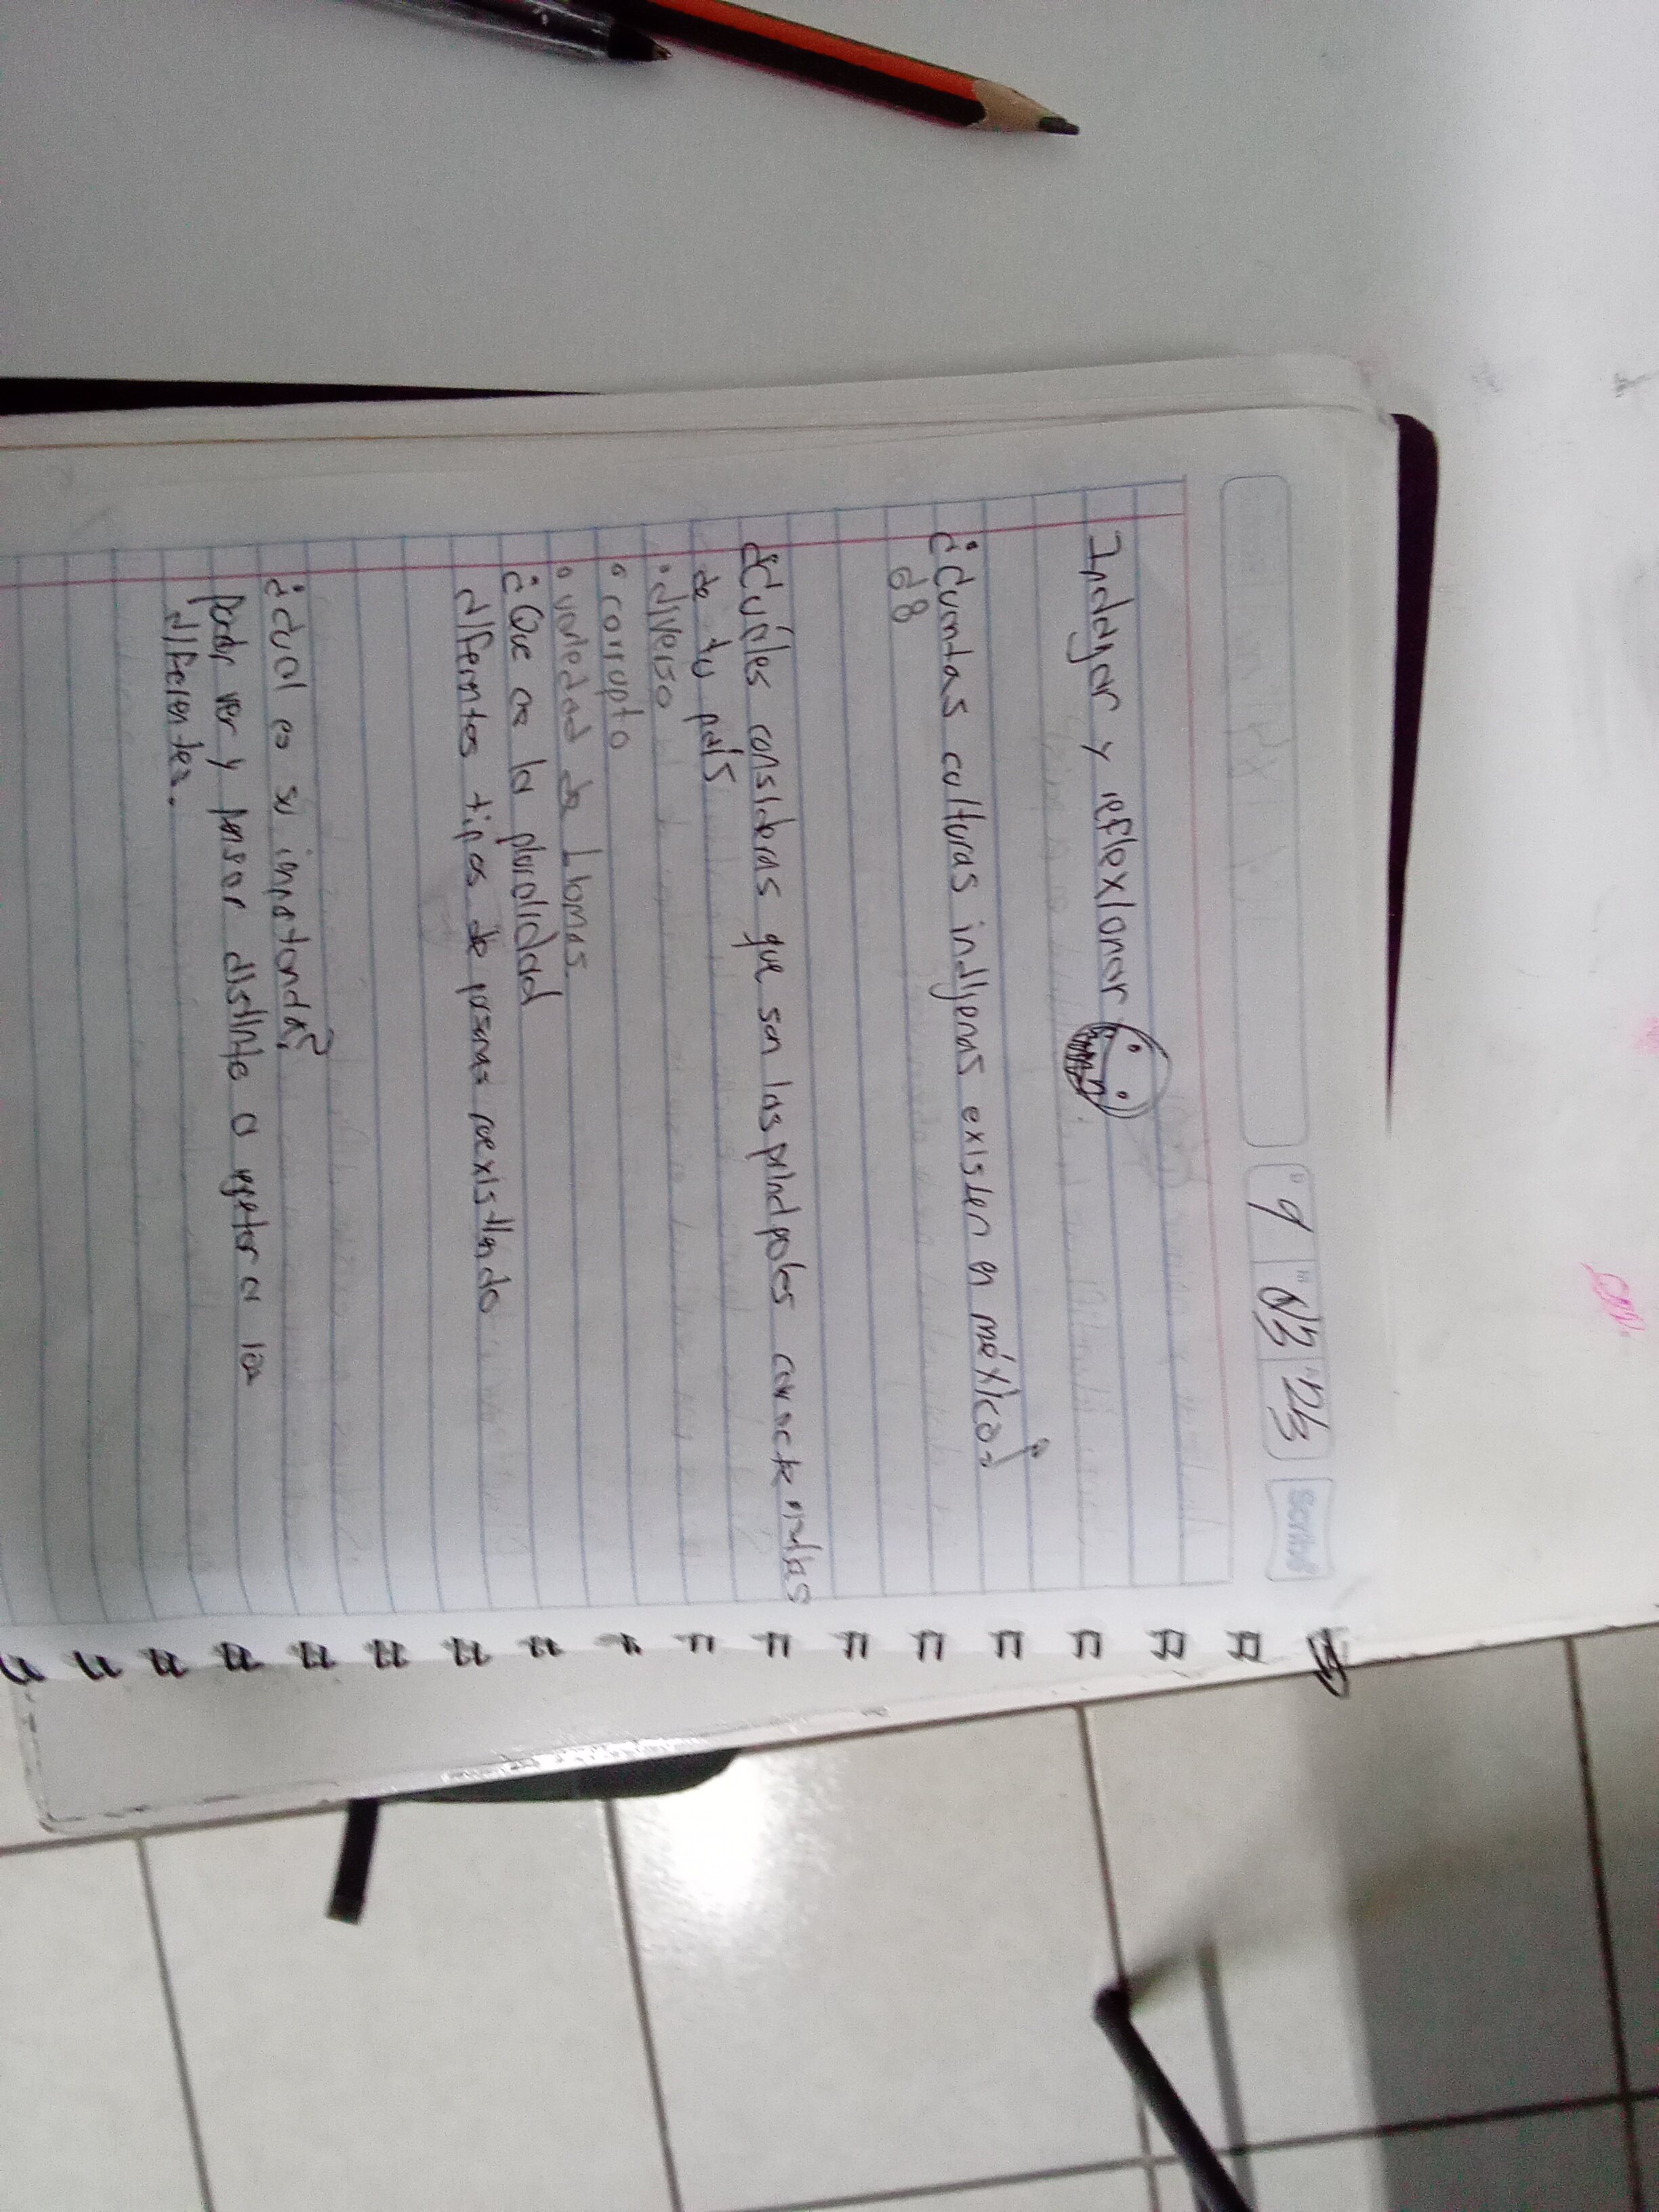 9 03 23
Scribe
Indagar y reflexionar
¿Cuantas culturas indigenas existen en méxico?
68
¿Cuáles consideras que son las principales caracteristicas
de tu país
• diverso
• corrupto
• variedad de Idomas.
¿Que es la pluralidad
diferentes tipos de personas coexistiendo
¿cual es su importancia?
poder ver y pensar distinto a respetar a los
diferentes.